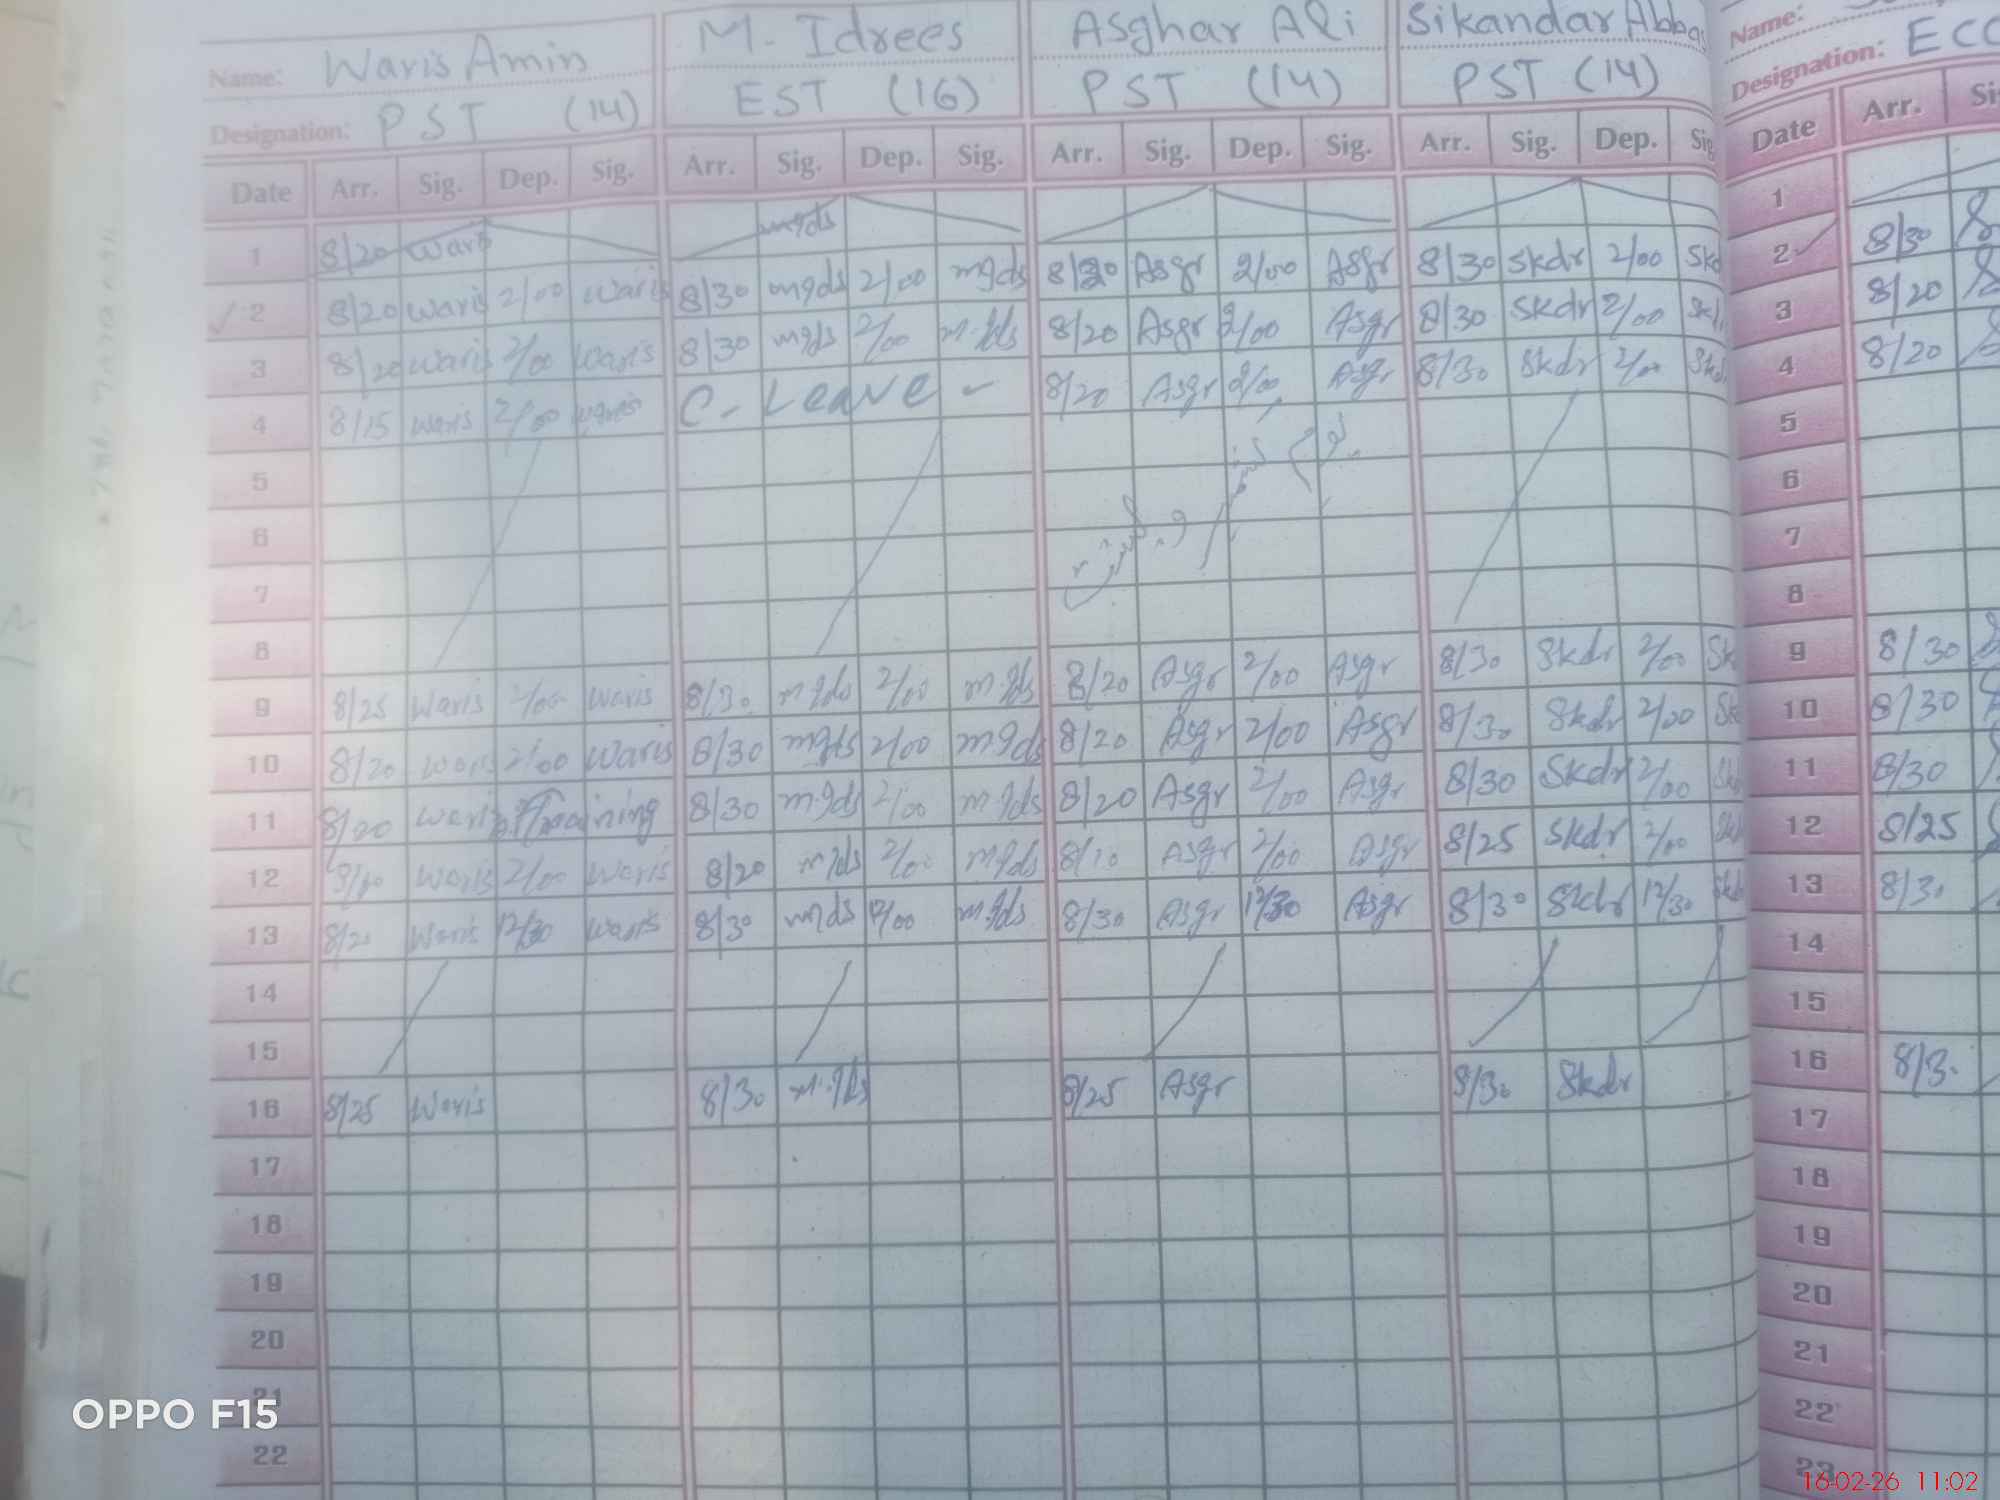 Name: Waris Amin M. Idrees Asghar Ali Sikandar Abbas Name:
Designation: PST (14) EST (16) PST (14) PST (14) Designation: ECC
Date Arr. Sig. Dep. Sig. Arr. Sig. Dep. Sig. Arr. Sig. Dep. Sig. Arr. Sig. Dep. Sig Date Arr. Si
1 8/20 Waris mqds 1
2 8/20 Waris 2/00 Waris 8/30 mqds 2/00 mqds 8/30 Asgr 2/00 Asgr 8/30 Skdr 2/00 Skd 2 8/30
3 8/20 Waris 2/00 Waris 8/30 mqds 2/00 m.qds 8/20 Asgr 2/00 Asgr 8/30 Skdr 2/00 Skd 3 8/20
4 8/15 Waris 2/00 Waris C - Leave - 8/20 Asgr 2/00 Asgr 8/30 Skdr 2/00 Skd 4 8/20
5 5
6 6
7 7
8 8
9 8/25 Waris 2/00 Waris 8/30 mqds 2/00 mqds 8/20 Asgr 2/00 Asgr 8/30 Skdr 2/00 Sk 9 8/30
10 8/20 Waris 2/00 Waris 8/30 mqds 2/00 mqds 8/20 Asgr 2/00 Asgr 8/30 Skdr 2/00 Sk 10 8/30
11 8/20 Waris Training 8/30 m.qds 2/00 m.qds 8/20 Asgr 2/00 Asgr 8/30 Skdr 2/00 Sk 11 8/30
12 Waris 2/00 Waris 8/20 mqds 2/00 mqds 8/10 Asgr 2/00 Asgr 8/25 Skdr 2/00 Skd 12 8/25
13 8/20 Waris 12/30 Waris 8/30 mqds 12/00 mqds 8/30 Asgr 12/30 Asgr 8/30 Skdr 12/30 Skd 13 8/30
14 14
15 15
16 8/25 Waris 8/30 m.qds 8/25 Asgr 8/30 Skdr 16 8/30
17 17
18 18
19 19
20 20
21 21
22 22
23
OPPO F15
16-02-26 11:02